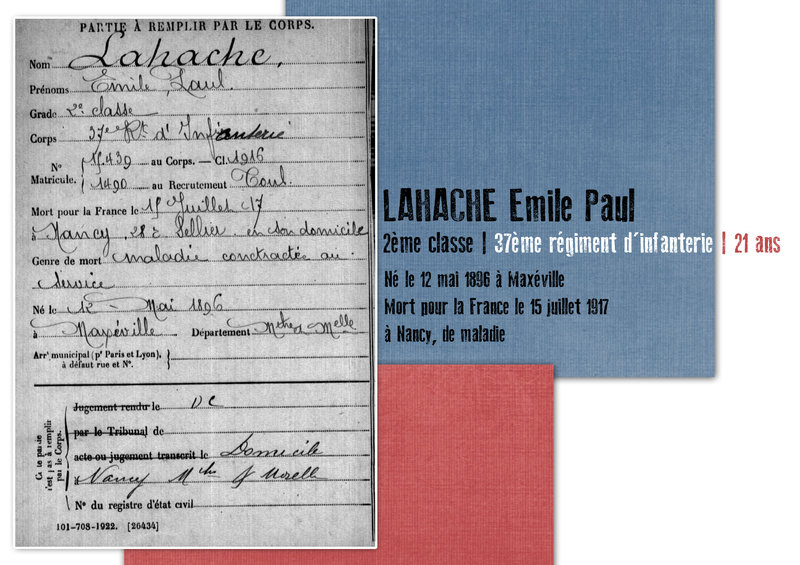 PARTIE À REMPLIR PAR LE CORPS.
Nom Lahache,
Prénoms Emile Paul.
Grade 2e classe
Corps 37e Rt d'Infanterie
N° Matricule. 15.439 au Corps. — Cl. 1916
1490 au Recrutement Toul.
Mort pour la France le 15 Juillet 17
à Nancy, 28 r. Sellier en son domicile
Genre de mort maladie conctractée au
service
Né le 12 Mai 1896
à Maxéville Département Mthe & Melle
Arrt municipal (pr Paris et Lyon), à défaut rue et N°.
Cette partie n'est pas à remplir par le Corps.
Jugement rendu le DC
par le Tribunal de
acte ou jugement transcrit le Domicile
à Nancy Mthe & Moselle
N° du registre d'état civil
101-708-1922. [26434]
LAHACHE Emile Paul
2ème classe | 37ème régiment d'infanterie | 21 ans
Né le 12 mai 1896 à Maxéville
Mort pour la France le 15 juillet 1917
à Nancy, de maladie